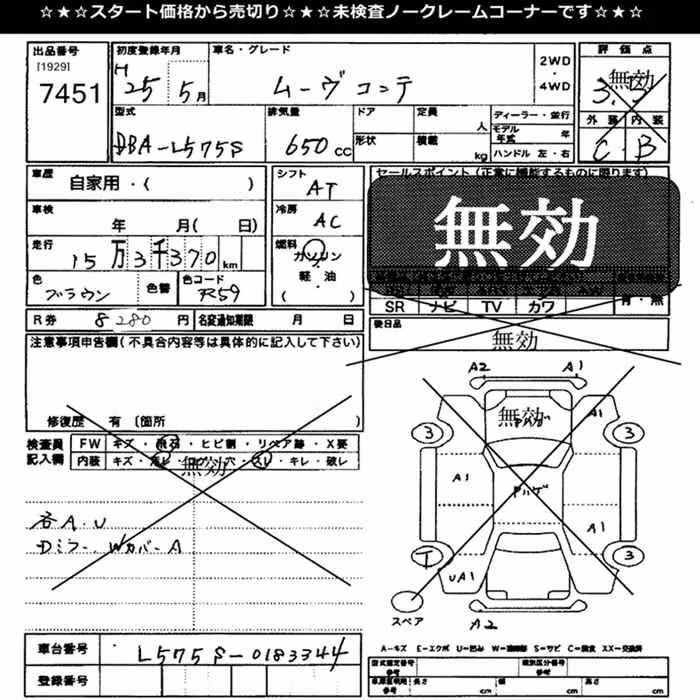 ☆★☆★スタート価格から売切り☆★☆★未検査ノークレームコーナーです☆★☆
出品番号
[1929]
7451
初度登録年月
H 25 5月
車名・グレード
ムーヴコンテ
2WD
・
4WD
評価点
3.
無効
外装 内装
C・B
型式
DBA-L575S
排気量
650 cc
ドア
形状
定員
人
積載
kg
ディーラー・並行
モデル年式 年
ハンドル 左・右
車歴
自家用・( )
車検
年 月( 日)
走行
15万3千370 km
色
ブラウン
色替
色コード
R59
シフト
AT
冷房
AC
燃料
ガソリン
軽・油
( )
セールスポイント(正常に機能するものに限ります)
無効
SR ナビ TV カワ
有・無
R券 8280 円
名変通知期限 月 日
後日品
無効
注意事項申告欄(不具合内容等は具体的に記入して下さい)
修復歴 有 〔箇所
検査員
記入欄
FW キズ・飛石・ヒビ割・リペア跡・X要
内装 キズ・汚レ・コゲ・穴・スレ・キレ・破レ
無効
各A.U
Dミラー、WカバーA
A2 A1
無効
A1
3 3
A1
Pハゲ
A1
3
UA1
スペア
A2
A-キズ E-エクボ U-凹み W-補修跡 S-サビ C-腐食 XX-交換済
車台番号 L575S-0183344
登録番号
型式指定番号 参考
類別区分番号 参考
車庫証明用 参考
長さ cm
幅 cm
高さ cm